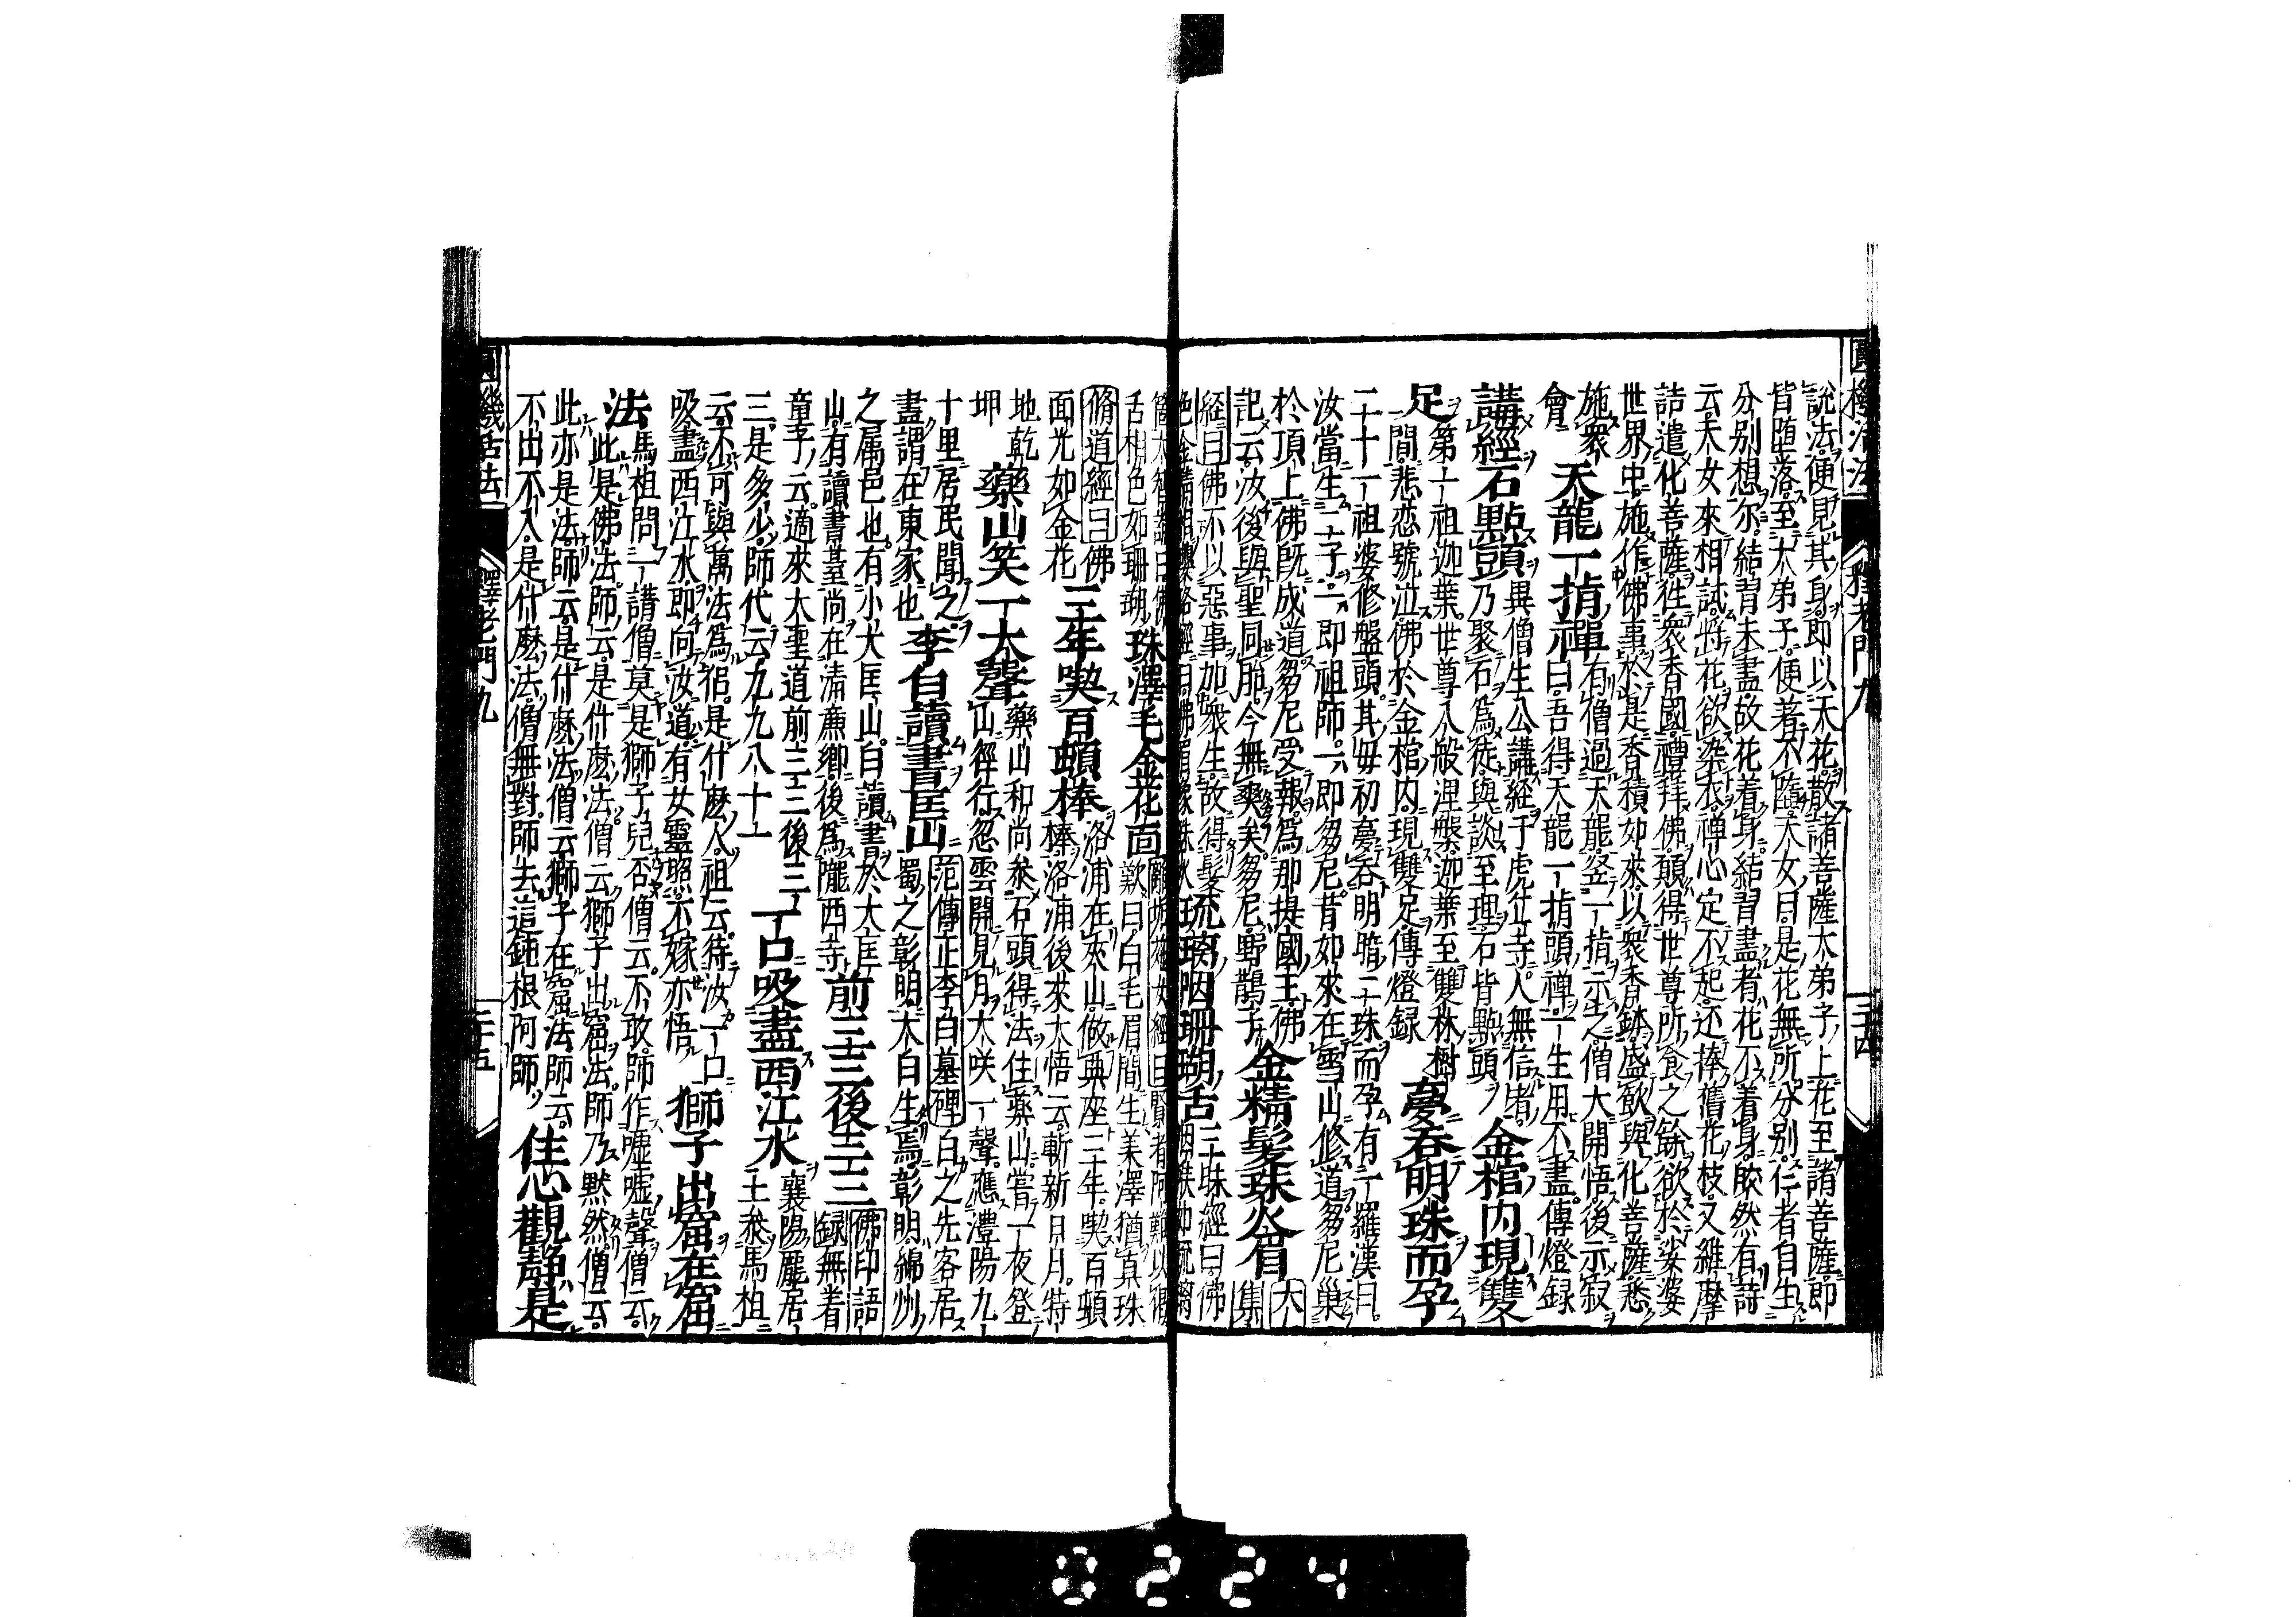 說法便見其身即以天花散諸菩薩大弟子上花至諸菩薩即
皆墮落至大弟子便著不墮天女曰是花無所分別仁者自生
分別想尔結習未盡故花着身結習盡者花不着身皎然有詩
云天女來相試將花欲染衣禪心定不起还捧舊花枝又維摩
詰遣化菩薩往衆香國禮拜佛願得世尊所食之餘欲於娑婆
世界中施作佛事於是香積如來以衆香鉢盛飯與化菩薩悉
施衆
會 天龍一指禪 有僧過天龍竖一指示之僧大開悟後示寂
曰吾得天龍一指頭禅一生用不盡傳燈録
講經石點頭 異僧生公講經于虎丘寺人無信者
乃聚石為徒與談至理石皆點頭 金棺内現雙
足 第一祖迦葉世尊入般涅槃迦葉至雙林樹
間悲恋號泣佛於金棺内現雙足傳燈録 夢吞明珠而孕
二十一祖婆修盤頭其母初夢吞明暗二珠而孕有一羅漢曰
汝當生二子一即祖師二即芻尼昔如來在雪山修道芻尼巢
於頂上佛既成道芻尼受報為那提國王佛
記云汝後與聖同胞今無爽矣芻尼野鵲子 金精髮珠火眉 大
集
経曰佛不以惡事加衆生故得髮
琉璃咽珊瑚舌
舌相色如珊瑚 珠澤毛金花面
歎曰白毛眉間生美澤猶真珠
脩道經曰佛
面光如金花 三年喫百頓棒 洛浦在夾山做典座三年喫百頓
棒洛浦後來大悟云斬新日月特
地乾
坤 藥山笑一大聲 藥山和尚参石頭得法住藥山嘗一夜登
山徑行忽雲開見月大咲一聲應澧陽九
十里居民聞之
盡謂在東家也 李白讀書匡山 范傳正李白墓碑白之先客居
蜀之彰明太白生焉彰明綿州
之属邑也有小大匡山白讀書於大匡
山有讀書臺尚在清廉鄉後為隴西寺 前三三後三三 佛印語
録無着
童子云適來大聖道前三三後三
三是多少師代云九九八十一 一口吸盡西江水 襄陽龐居
士参馬祖
云不可與萬法為侶是什麽人祖云待汝一口
吸盡西江水即向汝道有女靈照不嫁亦悟 獅子出窟在窟
法 馬祖問一講僧莫是獅子兒否僧云不敢師作噓噓聲僧云
此是佛法師云是什麽法僧云獅子出窟法師乃黙然僧云
此亦是法師云是什麽法僧云獅子在窟法師云
不出不入是什麽法僧無對師去這鈍根阿師 住心觀静是
圓機活法 釋老門九 二十五
0224